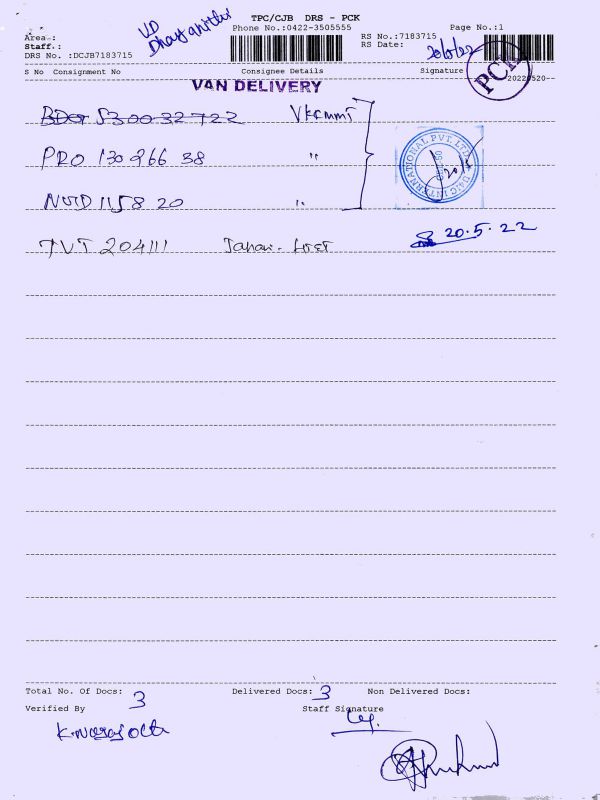 TPC/CJB DRS - PCK
VD
Area :
Phone No.:0422-3505555
Page No.:1
Staff.:
RS No.:7183715
DRS No. :DCJB7183715
RS Date: 20/5/22
PCK
20220520
S No Consignment No Consignee Details Signature
VAN DELIVERY
53 00 32 722
PRO 130 966 38 "
1158 20 "
TVT 204111
20.5.22
Total No. Of Docs: 3 Delivered Docs: 3 Non Delivered Docs:
Verified By Staff Signature